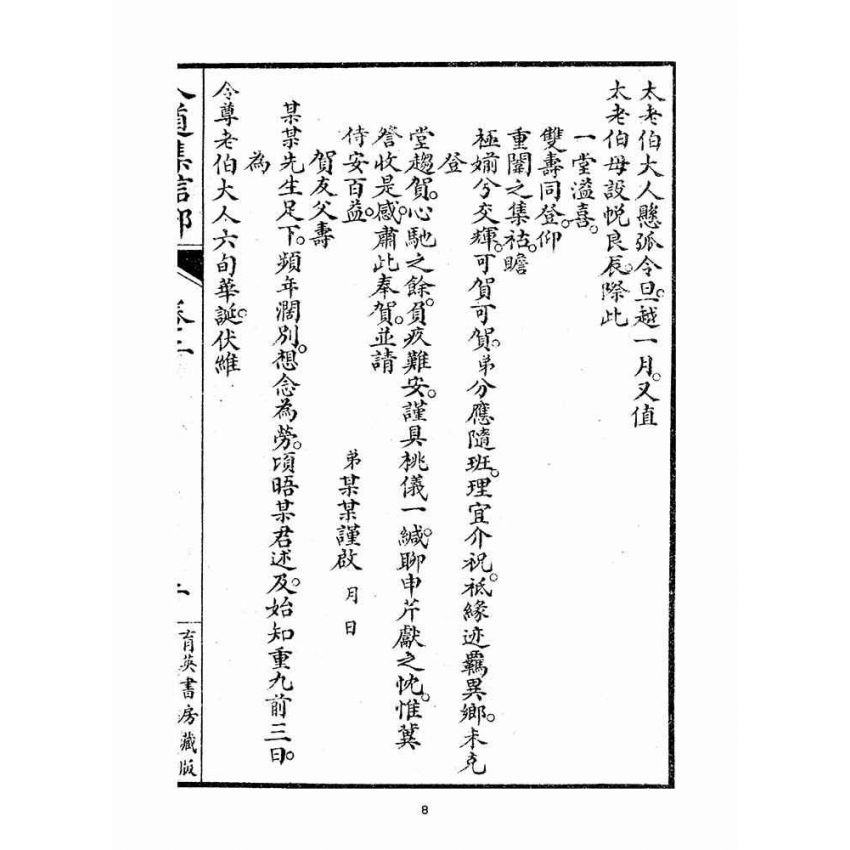 太老伯大人懸弧令旦。越一月。又值
太老伯母設帨良辰。際此
一堂溢喜。
雙壽同登。仰
重闈之集祜。瞻
極婺兮交輝。可賀可賀。弟分應隨班。理宜介祝。祗緣迹羈異鄉。未克
登
堂趨賀。心馳之餘。負疚難安。謹具桃儀一緘。聊申芹獻之忱。惟冀
詧收是感。肅此奉賀。並請
侍安百益。
弟某某謹啟 月 日
賀友父壽
某某先生足下。頻年濶別。想念為勞。頃晤某君述及。始知重九前三日。
為
令尊老伯大人六旬華誕。伏維
道集信
卷二
育英書房藏版
8